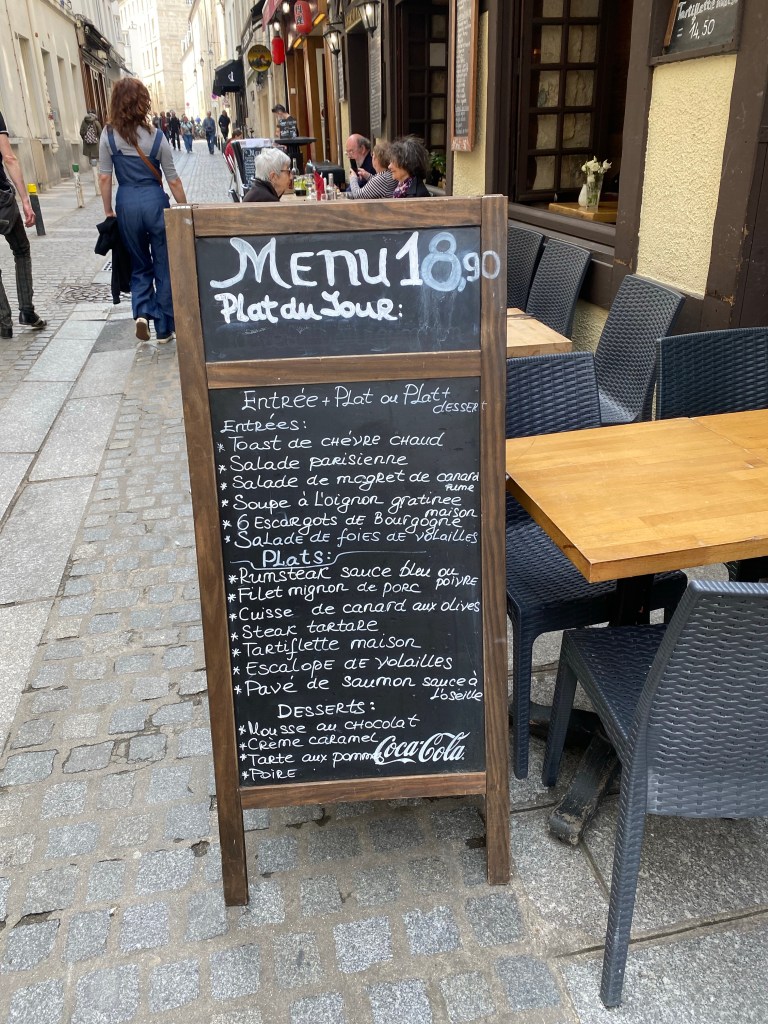 Tartiflette
14,50
MENU 18,90
Plat du Jour:
Entrée + Plat ou Plat + dessert
Entrées:
* Toast de chévre chaud
* Salade parisienne
* Salade de magret de canard fumé
* Soupe à l'oignon gratinee maison
* 6 Escargots de Bourgogne
* Salade de foies de volailles
Plats:
* Rumsteak sauce bleu ou poivre
* Filet mignon de porc
* Cuisse de canard aux olives
* Steak tartare
* Tartiflette maison
* Escalope de volailles
* Pavé de saumon sauce à l'oseille
Desserts:
* Mousse au chocolat
* Crème caramel
* Tarte aux pomme
Coca-Cola
* Poire